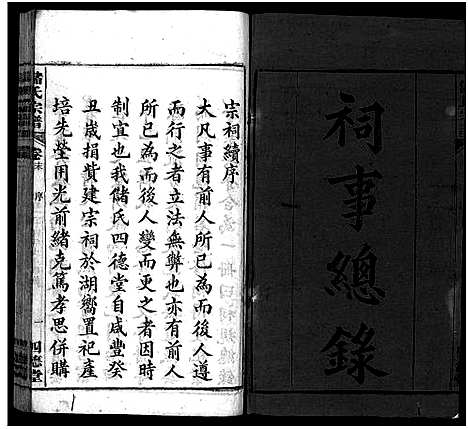 祠事總錄
宗祠續序
大凡事有前人所已為而後人遵
而行之者立法無弊也亦有前人
所已為而後人變而更之者因時
制宜也我儲氏四德堂自咸豐癸
丑歲捐貲建宗祠於湖嚮置祀產
培先塋用光前緒克篤孝思併購
儲氏宗譜
序
一
四德堂